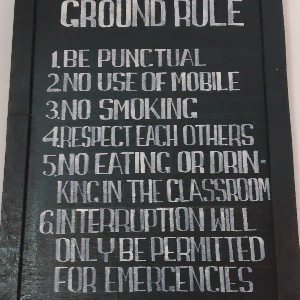 GROUND RULE
1.BE PUNCTUAL
2.NO USE OF MOBILE
3.NO SMOKING
4.RESPECT EACH OTHERS
5.NO EATING OR DRIN-
KING IN THE CLASSROOM
6.INTERRUPTION WILL
ONLY BE PERMITTED
FOR EMERGENCIES